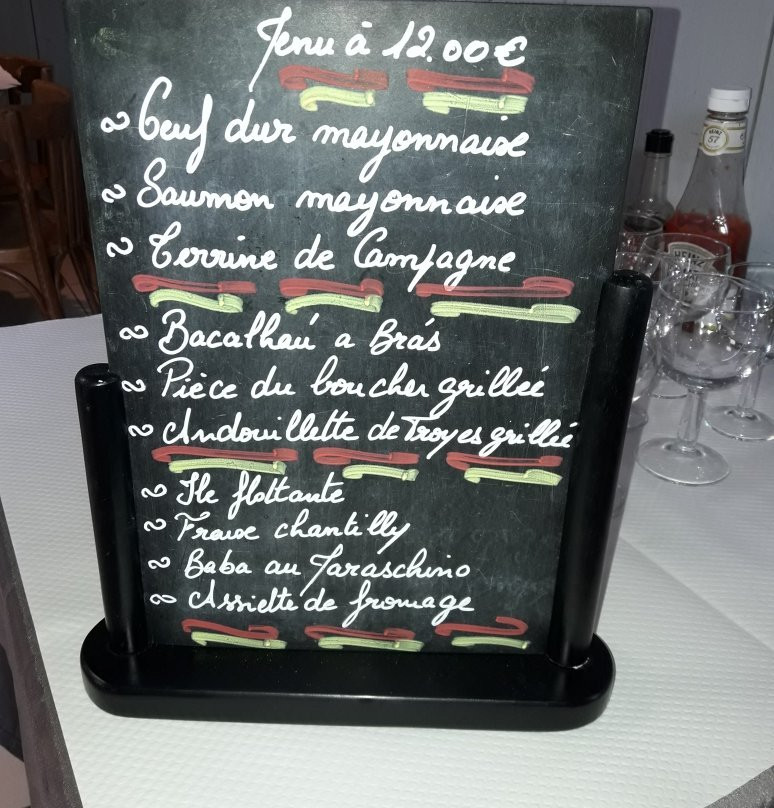 Menu à 12.00€
Oeuf dur mayonnaise
Saumon mayonnaise
Terrine de Campagne
Bacalhau a Brás
Pièce du boucher grillée
Andouillette de Troyes grillée
Ile flottante
Fraise chantilly
Baba au Maraschino
Assiette de fromage
HEINZ
57
HEINZ